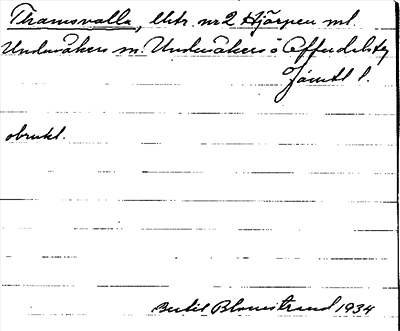 Thamsvalla, lht. nr 2 Hjärpen ml.
Undersåkers sn. Undersåkers o Offerdals tg
Jämtl l.
obrukl.
Bertil Blomstrand 1934